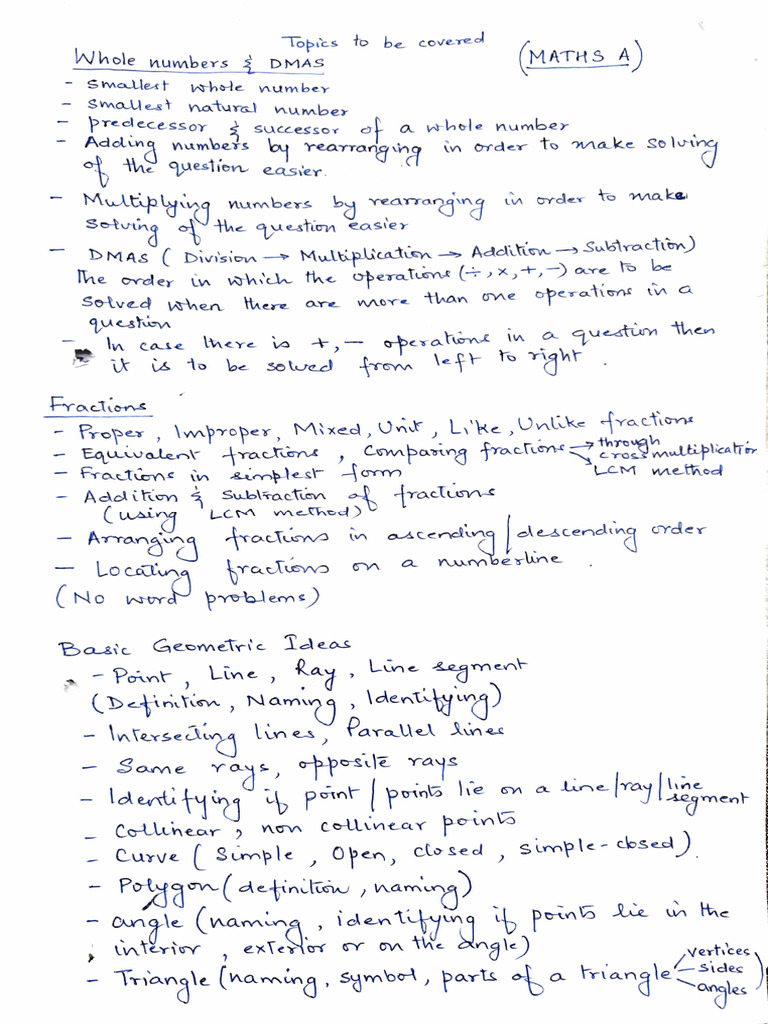 Topics to be covered
Whole numbers & DMAS (MATHS A)
- Smallest whole number
- Smallest natural number
- predecessor & successor of a whole number
- Adding numbers by rearranging in order to make solving
of the question easier.
- Multiplying numbers by rearranging in order to make
solving of the question easier
- DMAS ( Division → Multiplication → Addition → Subtraction)
The order in which the operations (÷, ×, +, −) are to be
solved when there are more than one operations in a
question
- In case there is +, − operations in a question then
it is to be solved from left to right .
Fractions
- Proper, Improper, Mixed, Unit, Like, Unlike fractions
- Equivalent fractions, Comparing fractions → through
cross multiplication
→ LCM method
- Fractions in simplest form
- Addition & Subtraction of fractions
(using LCM method)
- Arranging fractions in ascending/descending order
- Locating fractions on a numberline .
(No word problems)
Basic Geometric Ideas
- Point, Line, Ray, Line segment
(Definition, Naming, Identifying)
- Intersecting lines, Parallel lines
- Same rays, opposite rays
- Identifying if point/points lie on a line/ray/line
segment
- Collinear, non collinear points
- Curve ( Simple, Open, closed, simple-closed).
- Polygon (definition, naming)
- angle (naming, identifying if points lie in the
interior, exterior or on the angle)
- Triangle (naming, symbol, parts of a triangle vertices
sides
angles)